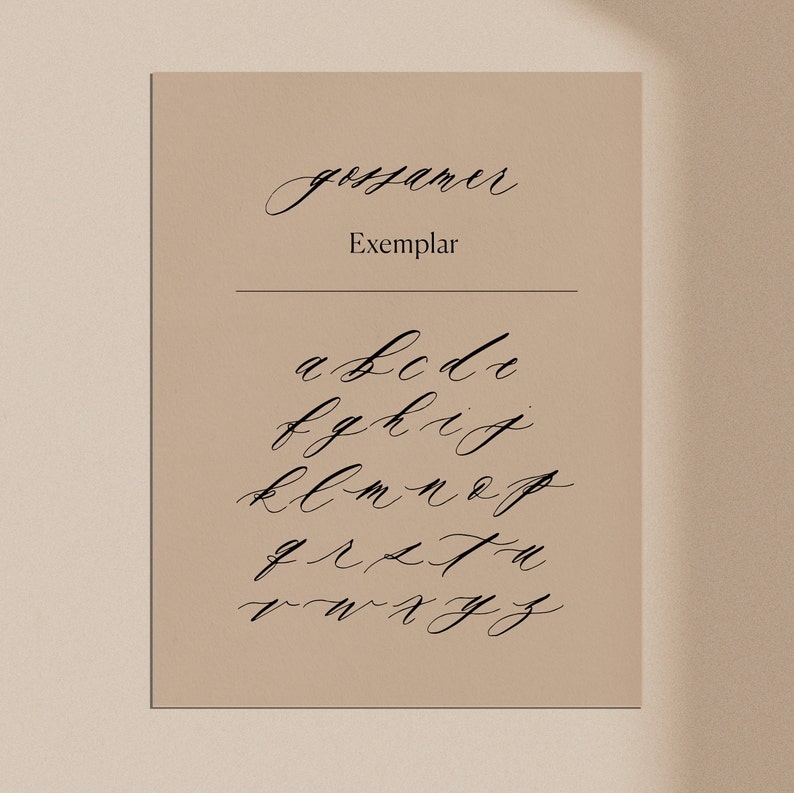 gossamer
Exemplar
a b c d e
f g h i j
k l m n o p
q r s t u
v w x y z